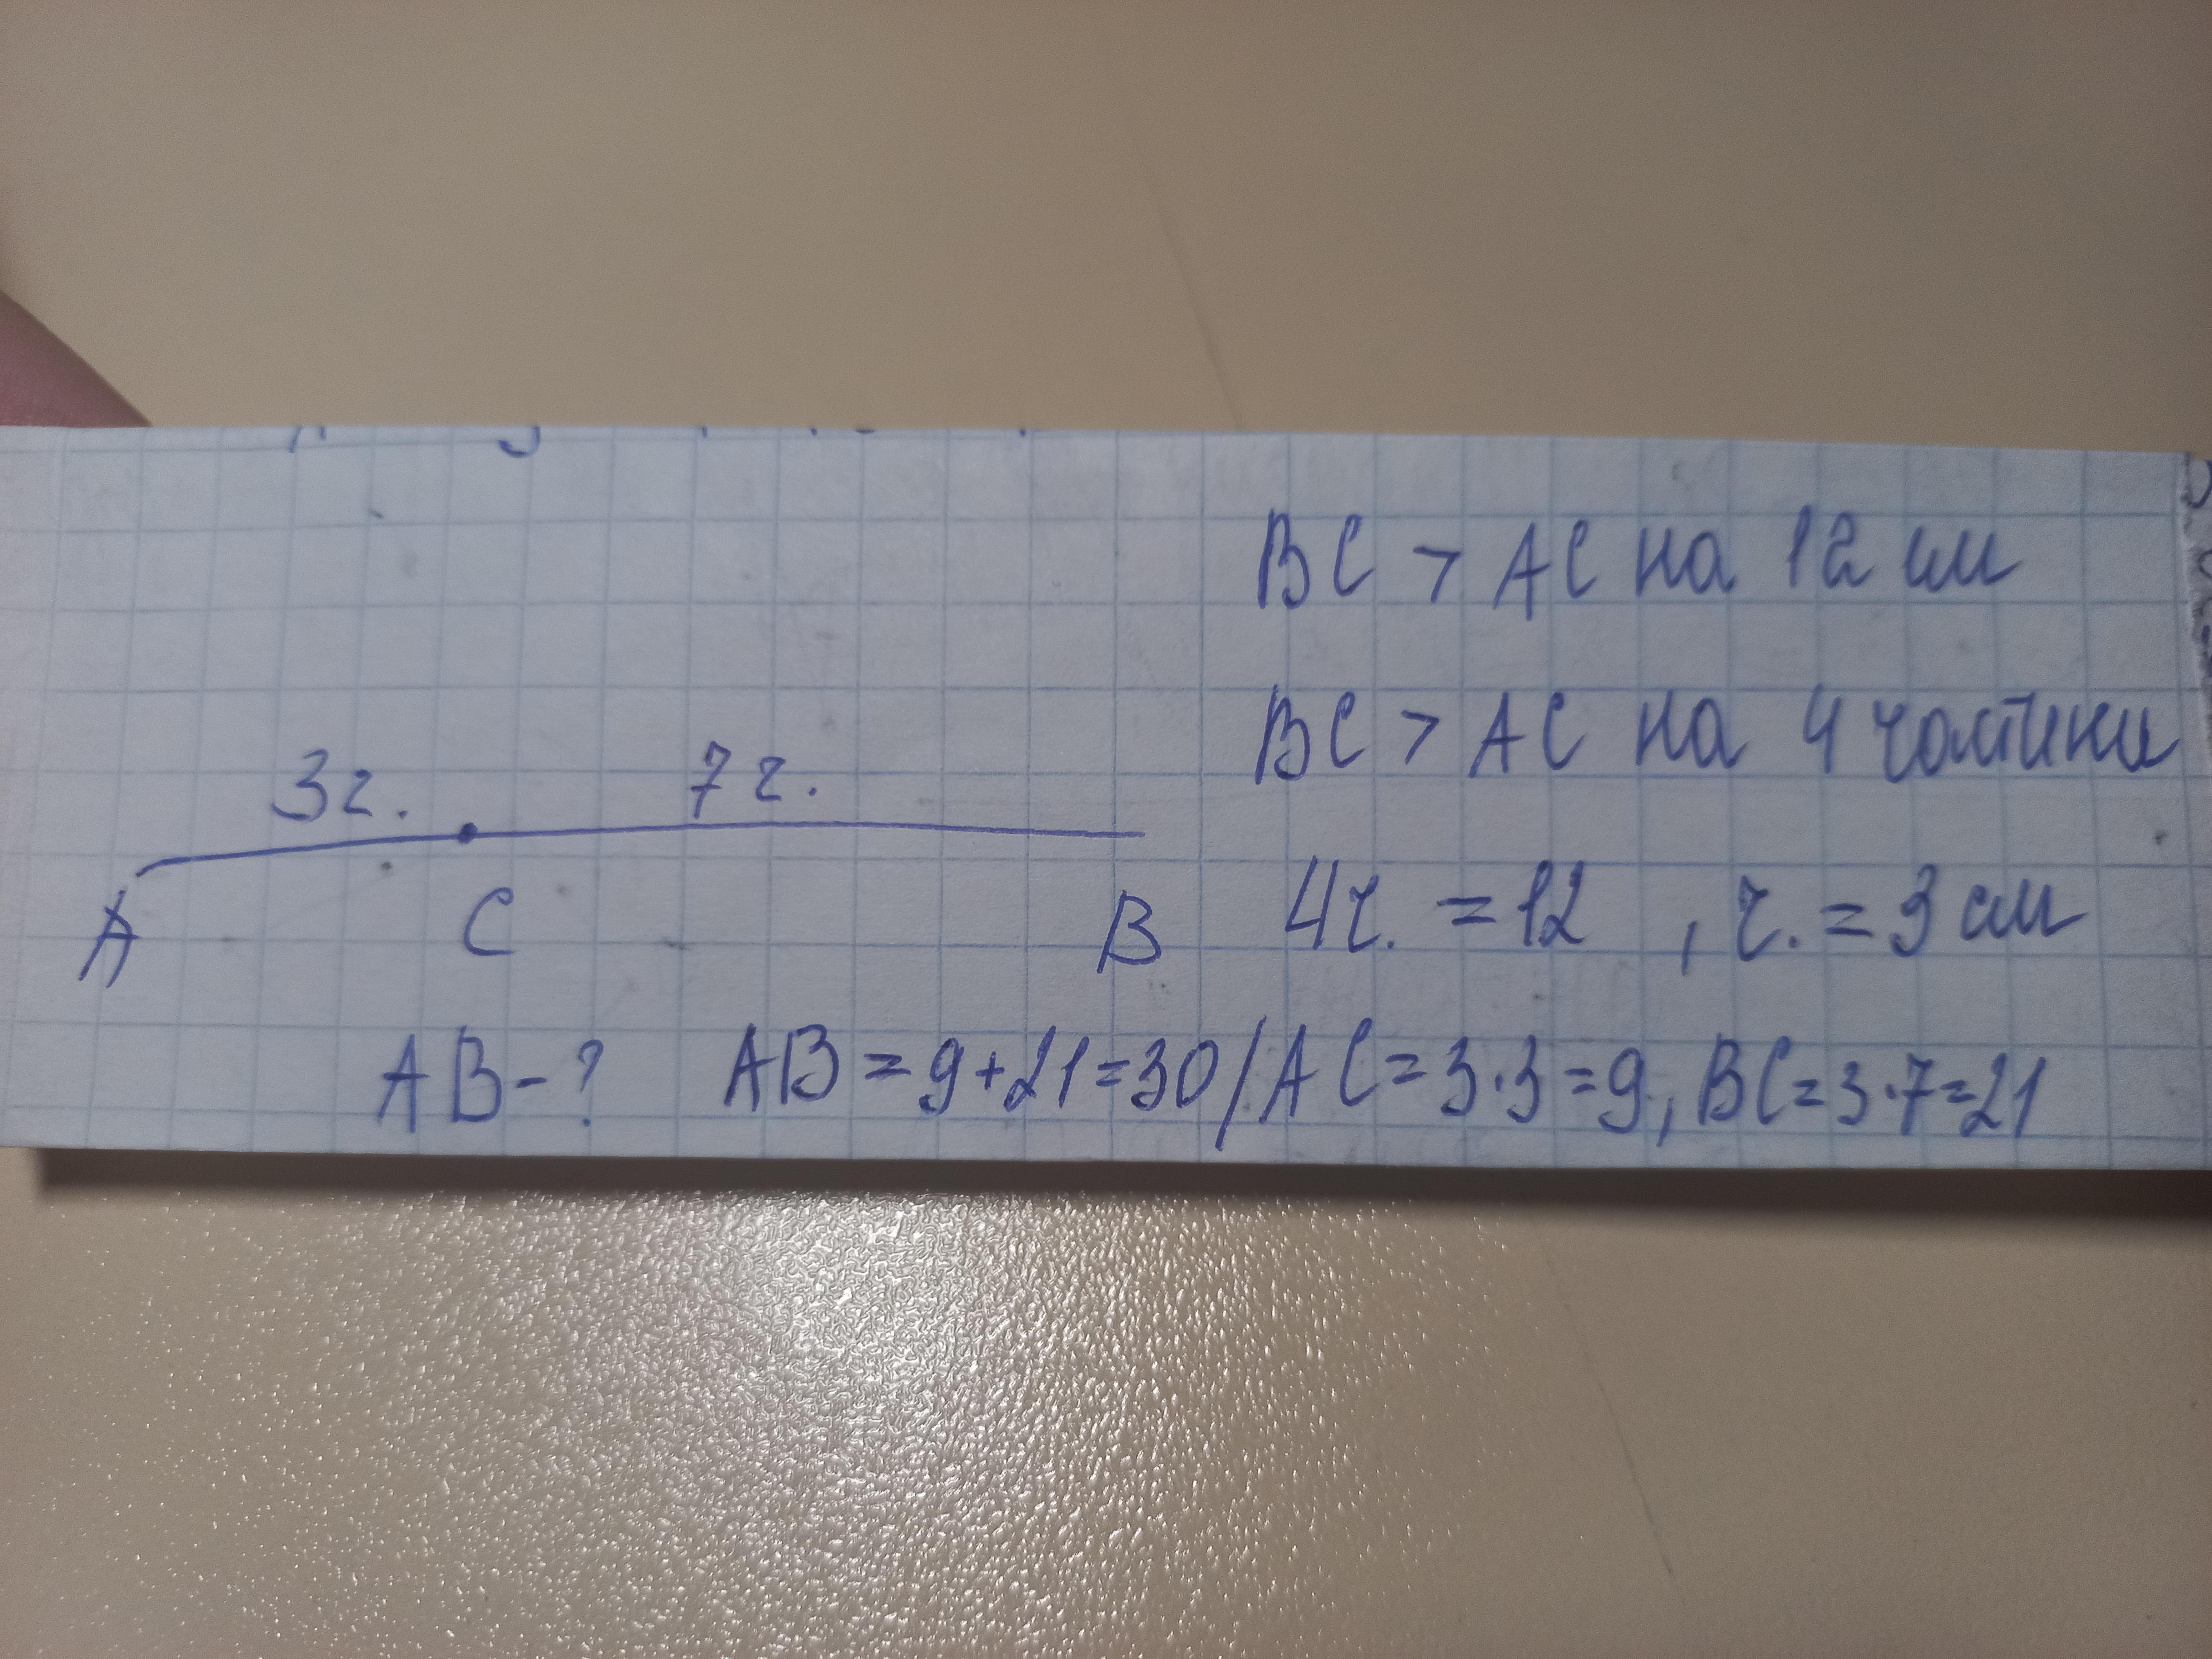 BC > AC на 12 см
BC > AC на 4 частини
3ч. 7ч.
A C B
4ч. = 12 , ч. = 3 см
AB - ? AB = 9 + 21 = 30 / AC = 3 · 3 = 9, BC = 3 · 7 = 21